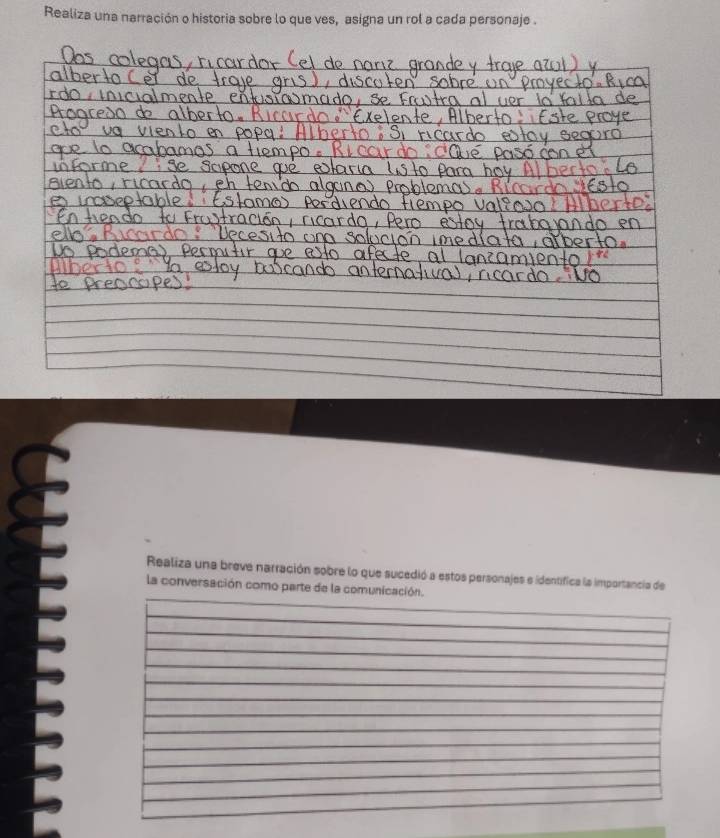 Realiza una narración o historia sobre lo que ves, asigna un rol a cada personaje.
Dos colegas, ricardor (el de nariz grande y traje azul) y
alberto (el de traje gris), discuten sobre un proyecto. Rica
rdo, inicialmente entusiasmado, se frustra al ver la falta de
Progreso de alberto. Ricardo: "Exelente, Alberto! ¡Este proye
cto va viento en popa! Alberto: Si ricardo estoy seguro
que lo acabamos a tiempo. Ricardo: ¿Qué pasó con el
informe? ¡se supone que estaria listo para hoy Alberto: Lo
siento, ricardo, eh tenido algunos problemas. Ricardo: ¡Esto
es inaseptable! ¡Estamos perdiendo tiempo valioso! Alberto:
"Entiendo tu frustración, ricardo, Pero estoy trabajando en
ello". Ricardo: "Necesito una solución imediata, alberto.
No podemos permitir que esto afecte al lanzamiento!"
Alberto: "Ya estoy buscando anternativas, ricardo. ¡No
te preocupes!
Realiza una breve narración sobre lo que sucedió a estos personajes e identifica la importancia de
la conversación como parte de la comunicación.